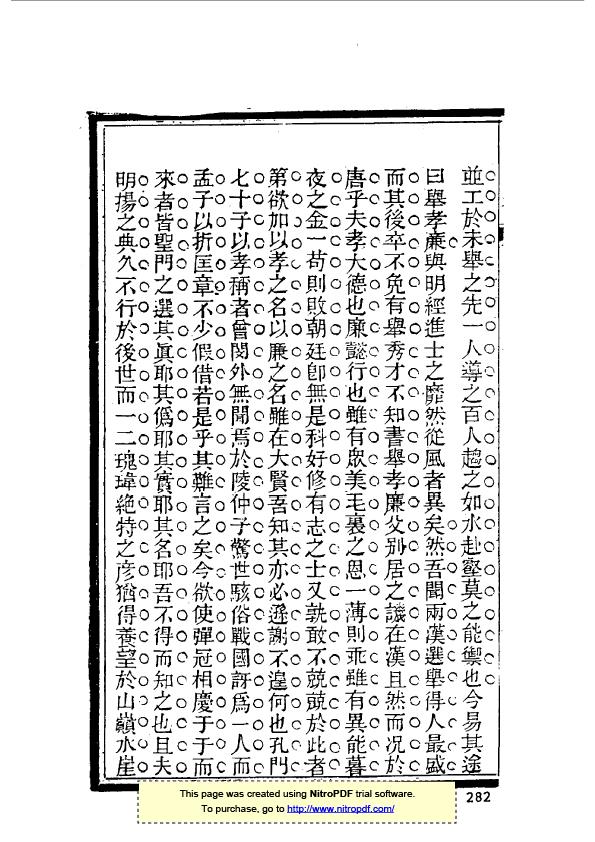 並工於未舉之先一人導之百人趨之如水赴壑莫之能禦也今易其途
曰舉孝廉與明經進士之靡然從風者異矣然吾聞兩漢選舉得人最盛
而其後卒不免有舉秀才不知書舉孝廉父別居之議在漢且然而况於
唐乎夫孝大德也廉懿行也雖有眾美毛裏之恩一薄則乖雖有異能暮
夜之金一苟則敗朝廷卽無是科好修有志之士又孰敢不兢兢於此者
第欲加以孝之名以廉之名雖在大賢吾知其亦必遜謝不遑何也孔門
七十子以孝稱者曾閔外無聞焉於陵仲子驚世駭俗戰國訝爲一人而
孟子以折匡章不少假借若是乎其難言之矣今欲使彈冠相慶于于而
來者皆聖門之選其眞耶其僞耶其實耶其名耶吾不得而知之也且夫
明揚之典久不行於後世而一二瑰瑋絶特之彥猶得養望於山巔水崖
282
This page was created using NitroPDF trial software.
To purchase, go to http://www.nitropdf.com/